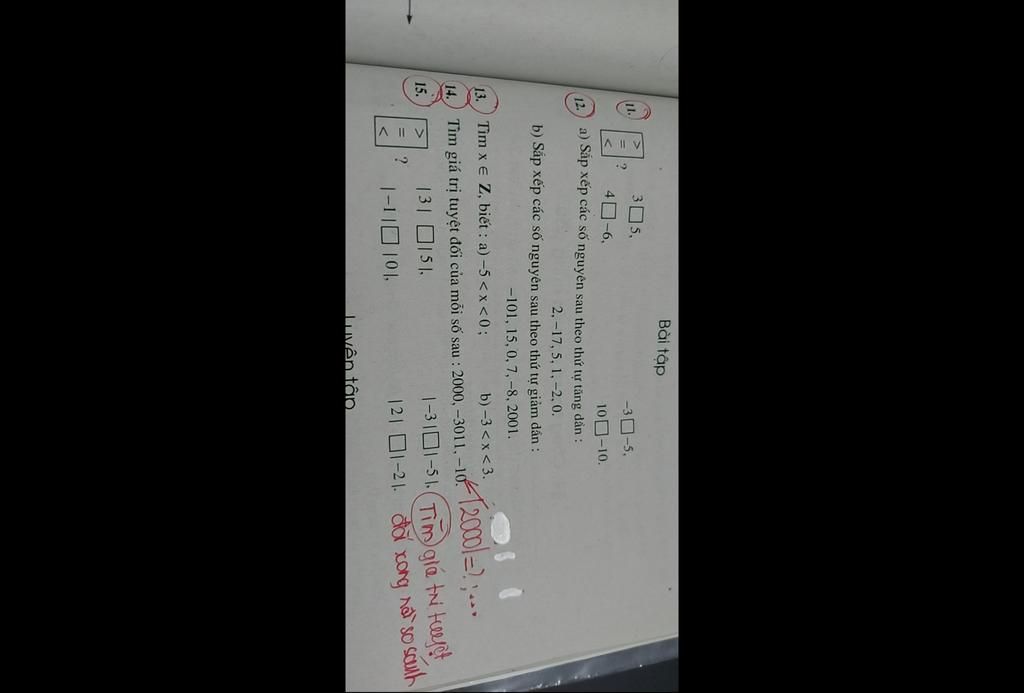 Bài tập
11. > = < ? 3 □ 5, −3 □ −5,
4 □ −6, 10 □ −10.
12. a) Sắp xếp các số nguyên sau theo thứ tự tăng dần :
2, −17, 5, 1, −2, 0.
b) Sắp xếp các số nguyên sau theo thứ tự giảm dần :
−101, 15, 0, 7, −8, 2001.
13. Tìm x ∈ Z, biết : a) −5 < x < 0 ; b) −3 < x < 3.
14. Tìm giá trị tuyệt đối của mỗi số sau : 2000, −3011, −10.
|2000| = ? ; ...
15. > = < ? | 3 | □ | 5 |, | −3 | □ | −5 |,
| −1 | □ | 0 |, | 2 | □ | −2 |.
Tìm giá trị tuyệt
đối xong rồi so sánh
Luyện tập